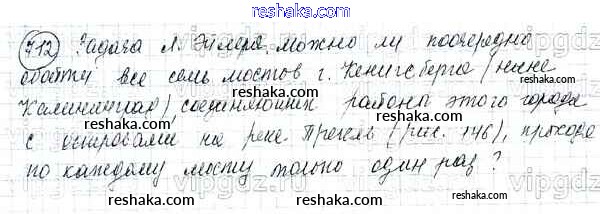 reshak.ru
712 Задача Л. Эйлера. Можно ли поочередно
обойти все семь мостов г. Кенигсберга (ныне
Калининград), соединяющих районы этого города
с островами на реке Прегель (рис. 146), проходя
по каждому мосту только один раз?
reshak.ru